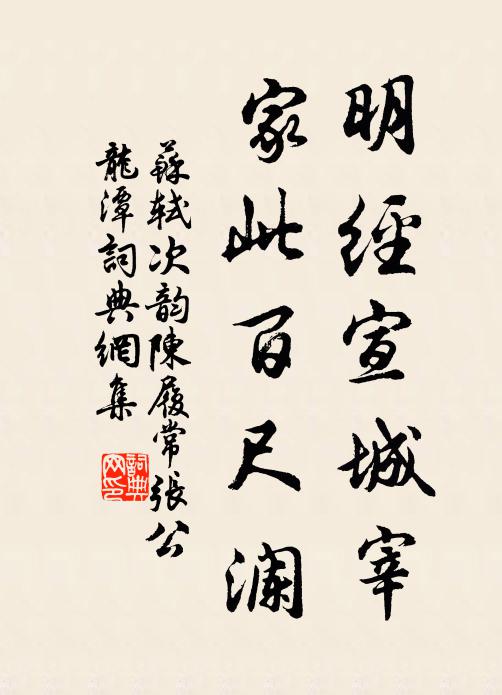 明經宣城宰
家此百尺澜
蘇軾次韵陳履常張公
龍潭詞典網集
詞典网印